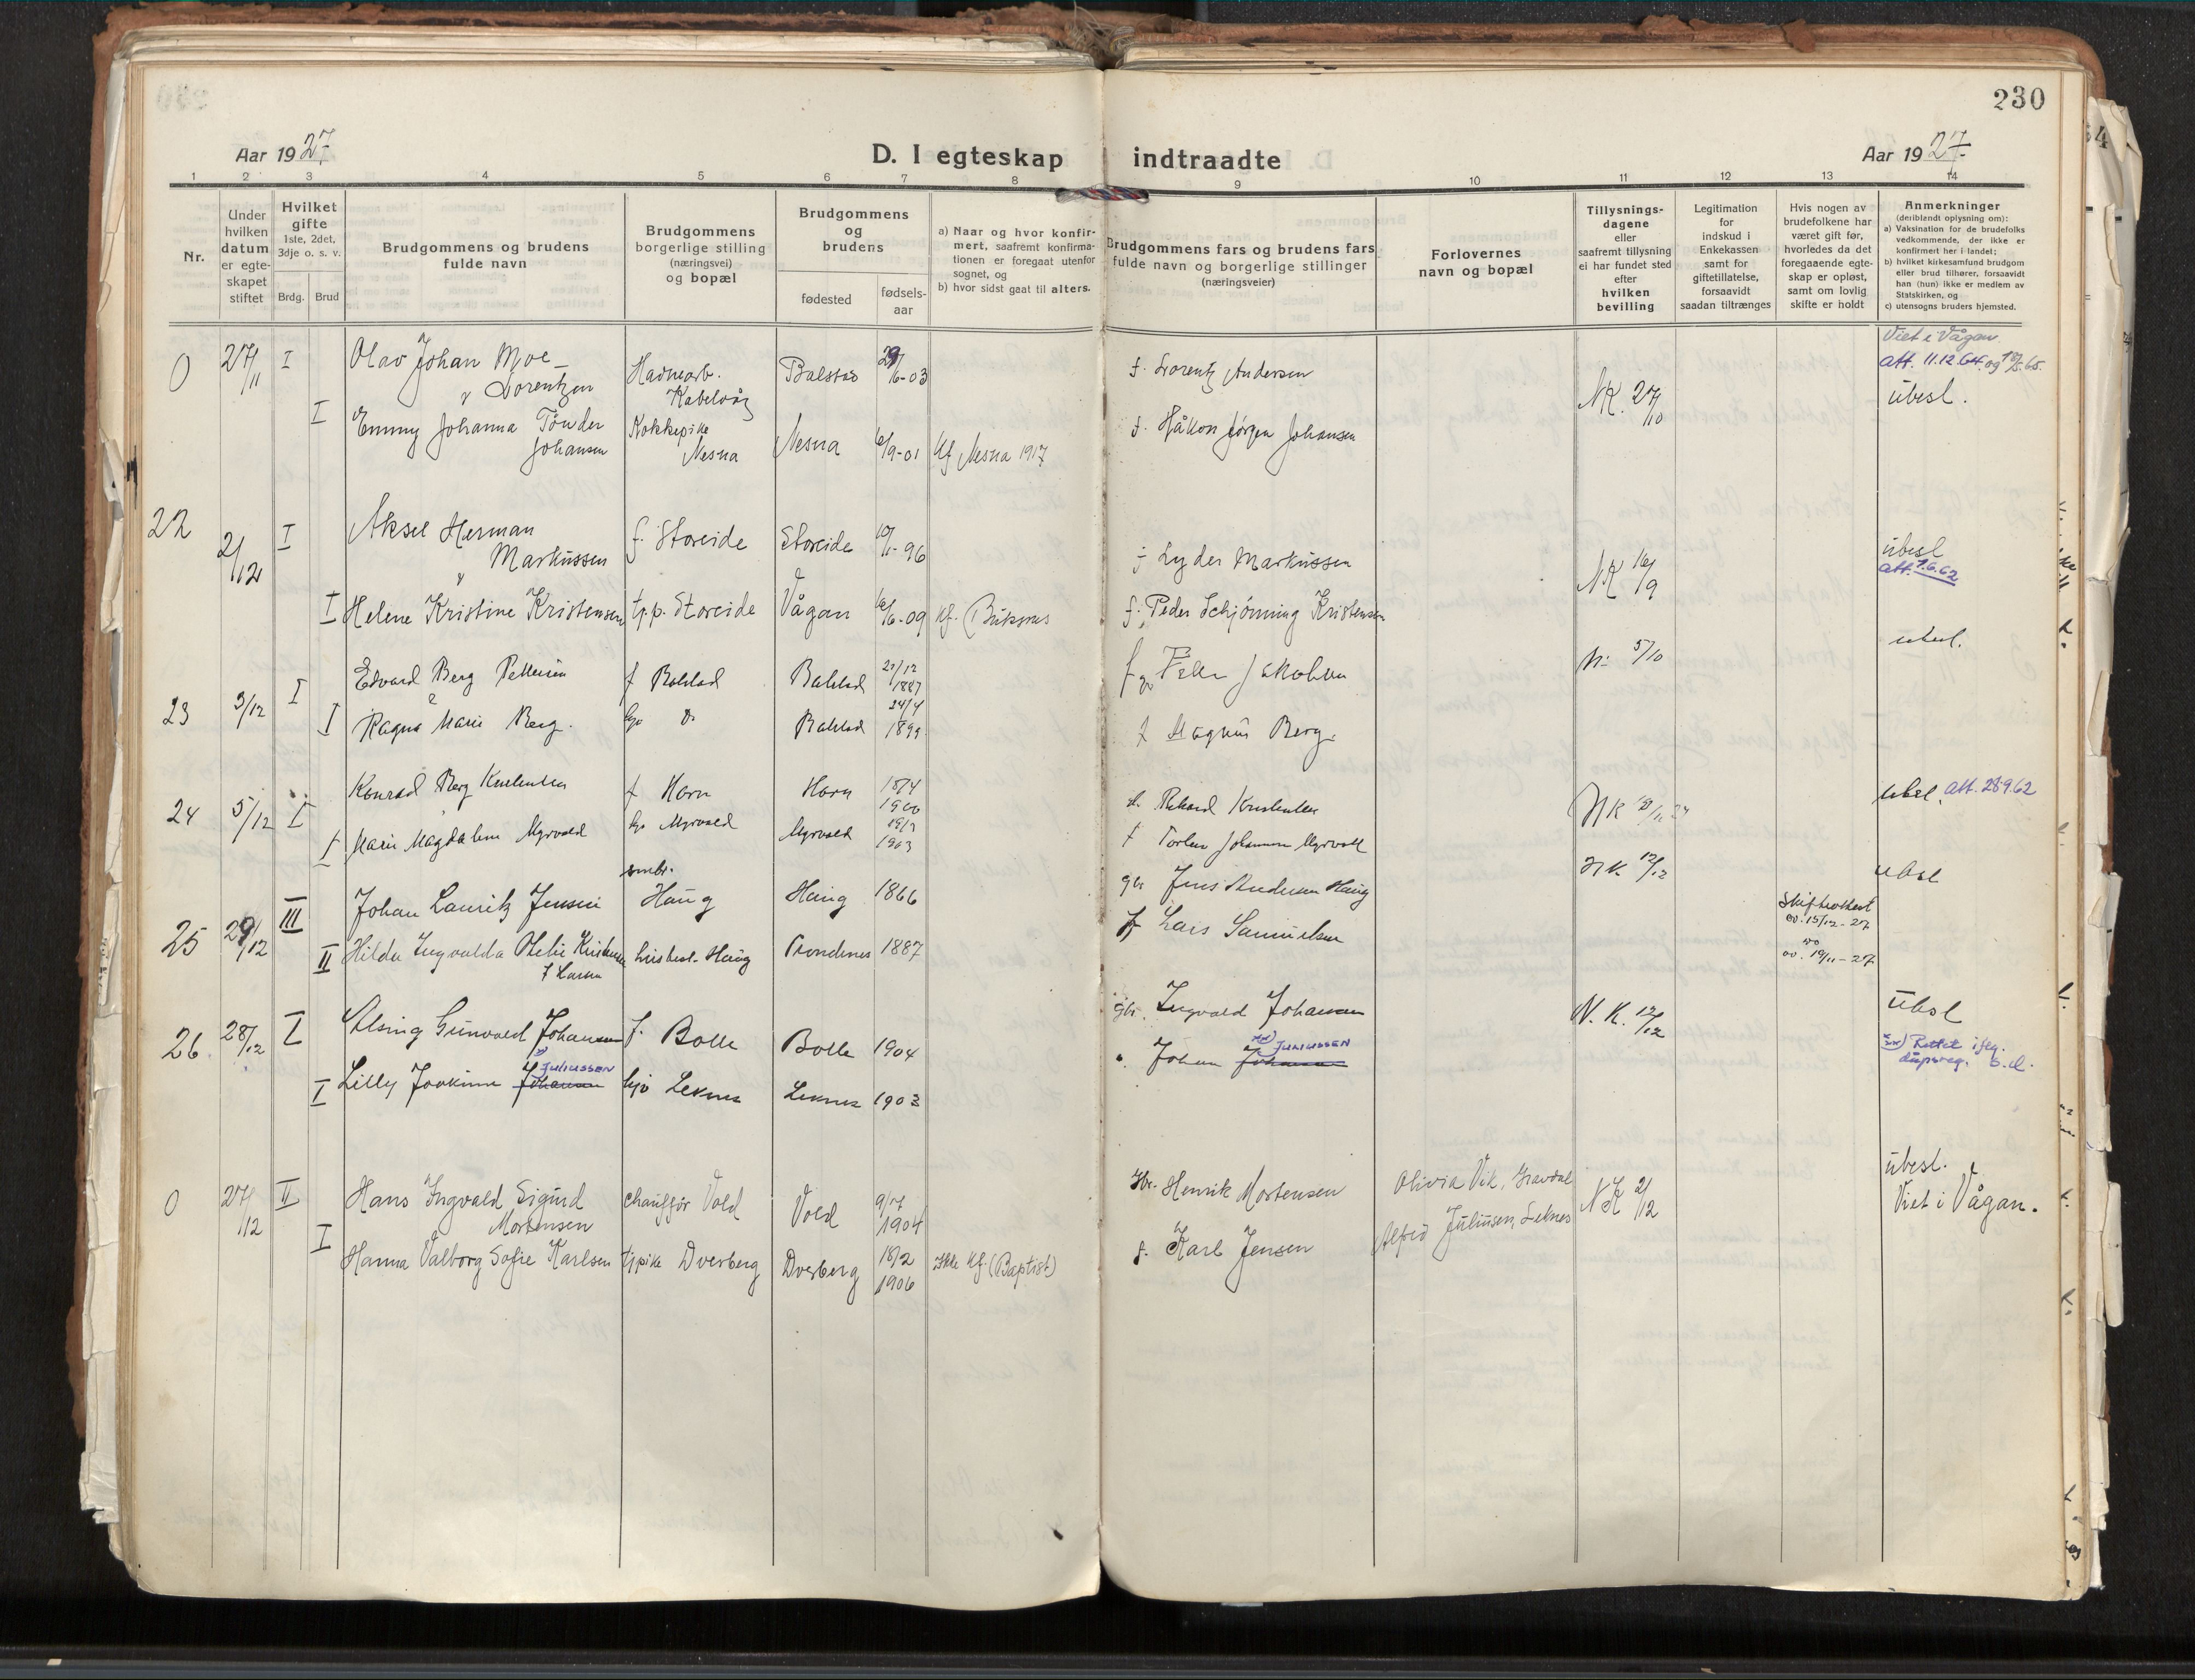 230
Aar 1927.
D. I egteskap indtraadte
Aar 1927.
1 2 3 4 5 6 7 8 9 10 11 12 13 14
Nr.
Under
hvilken
datum
er egte-
skapet
stiftet
Hvilket
gifte
1ste, 2det,
3dje o. s. v.
Brdg. Brud
Brudgommens og brudens
fulde navn
Brudgommens
borgerlige stilling
(næringsvei)
og bopæl
Brudgommens
og
brudens
fødested
fødsels-
aar
a) Naar og hvor konfir-
mert, saafremt konfirma-
tionen er foregaat utenfor
sognet, og
b) hvor sidst gaat til alters.
Brudgommens fars og brudens fars
fulde navn og borgerlige stillinger
(næringsveier)
Forlovernes
navn og bopæl
Tillysnings-
dagene
eller
saafremt tillysning
ei har fundet sted
efter
hvilken
bevilling
Legitimation
for
indskud i
Enkekassen
samt for
giftetillatelse,
forsaavidt
saadan tiltrænges
Hvis nogen av
brudefolkene har
været gift før,
hvorledes da det
foregaaende egte-
skap er opløst,
samt om lovlig
skifte er holdt
Anmerkninger
(deriblandt oplysning om):
a) Vaksination for de brudefolks
vedkommende, der ikke er
konfirmert her i landet;
b) hvilket kirkesamfund brudgom
eller brud tilhører, forsaavidt
han (hun) ikke er medlem av
Statskirken, og
c) utensogns bruders hjemsted.
Viet i Vågan.
0 27/11 I Olav Johan Moe Havnearb. Balstad 16-03 f. Lorentz Andersen att. 11.12.64. og
Lorentzen Kabelvåg NK. 27/10 ubesl.
I Emmy Johanna Tönder Kokkepike f. Håkon Jörgen Johansen
Johansen Nesna Nesna 6/9-01 Kf Nesna 1917
22 2/12 I Aksel Herman f. Storeide Storeide 96
Markussen f Lyder Markussen NK 16/9 ubesl
att. 1.6.62
I Helene Kristine Kristensen tj.p. Storeide Vågan 6-09 kf. (Buksnes f. Peder Schjönning Kristensen
Edvard Berg Pettersen f Balstad Balstad 21/12 1887 5/10 ubesl.
23 3/12 I
I Ragna Marie Berg. Balstad 24/4 1899 f Magnus Berg.
Konrad Berg Kristensen f Horn Horn 18/4 1900 Rikard Kristensen ubesl. att. 28.9.62
24 5/12 I NK
I Marie Magdalene Myrvold Myrvold Myrvold 1903 f Torleu Johannes Myrvoll
smbr.
Johan Lauritz Jensen Haug Haug 1866 gbr Jens Andersen Haug NK. 12/12 ubesl
25 29/12 III Skifteattest
ov. 15/12-27
II Hilda Ingvalda Kristensen Haug Trondenes 1887 f Lars Samuelsen
f Larsen ov. 19/11-27
26 28/12 I Elsing Gunvald Johansen f. Bolle Bolle 1904 gbr. Ingvald Johansen N.K. 12/12 ubesl
Juliussen
I Lilly Joakime Johansen hjv Leknes Leknes 1903 Johan Johansen
Juliussen
Rettet iflg.
dåpsreg. s.d.
0 27/12 II Hans Ingvald Sigurd chauffør Vold Vold 9/7 1904 Hbr. Henrik Mortensen Olivia Vik, Gravdal NK 2/12 ubesl.
Mortensen Viet i Vågan.
I Hanna Valborg Sofie Karlsen tjpike Dverberg Dverberg 18/2 1906 Ikke Kf. (Baptist) f. Karl Jensen Alfred Juliusen, Leknes